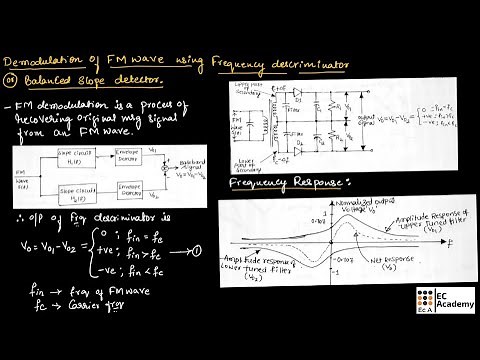 Demodulation of FM wave using Frequency descriminator
(or) Balanced slope detector.
- FM demodulation is a process of
recovering original msg signal
from an FM wave.
FM
wave
S(t)
Slope circuit
H₁(f)
Envelope
Detector
V₀₁
Baseband
signal
V₀=V₀₁-V₀₂
Slope Circuit
H₂(f)
Envelope
Detector
V₀₂
∴ o/p of freq descriminator is
V₀ = V₀₁ - V₀₂ = { 0 ; fin = fc
+ve ; fin > fc → ①
-ve ; fin < fc
fin → freq of FM wave
fc → Carrier freq
Upper part of
Secondary
D₁
FM
Wave
Lower
Part of
Secondary
D₂
output
signal
V₀=V₀₁-V₀₂ = { 0 ; fin=fc
+ve ; fin>fc
-ve ; fin<fc
Frequency Response :
Normalized output
Voltage 'V₀'
1
0.707
Amplitude Response of
Upper Tuned filter
(V₀₁)
f
-0.707
-1
Amplitude response of
Lower Tuned filter
(V₀₂)
Net Response
(V₀)
EC
Academy
Ec A